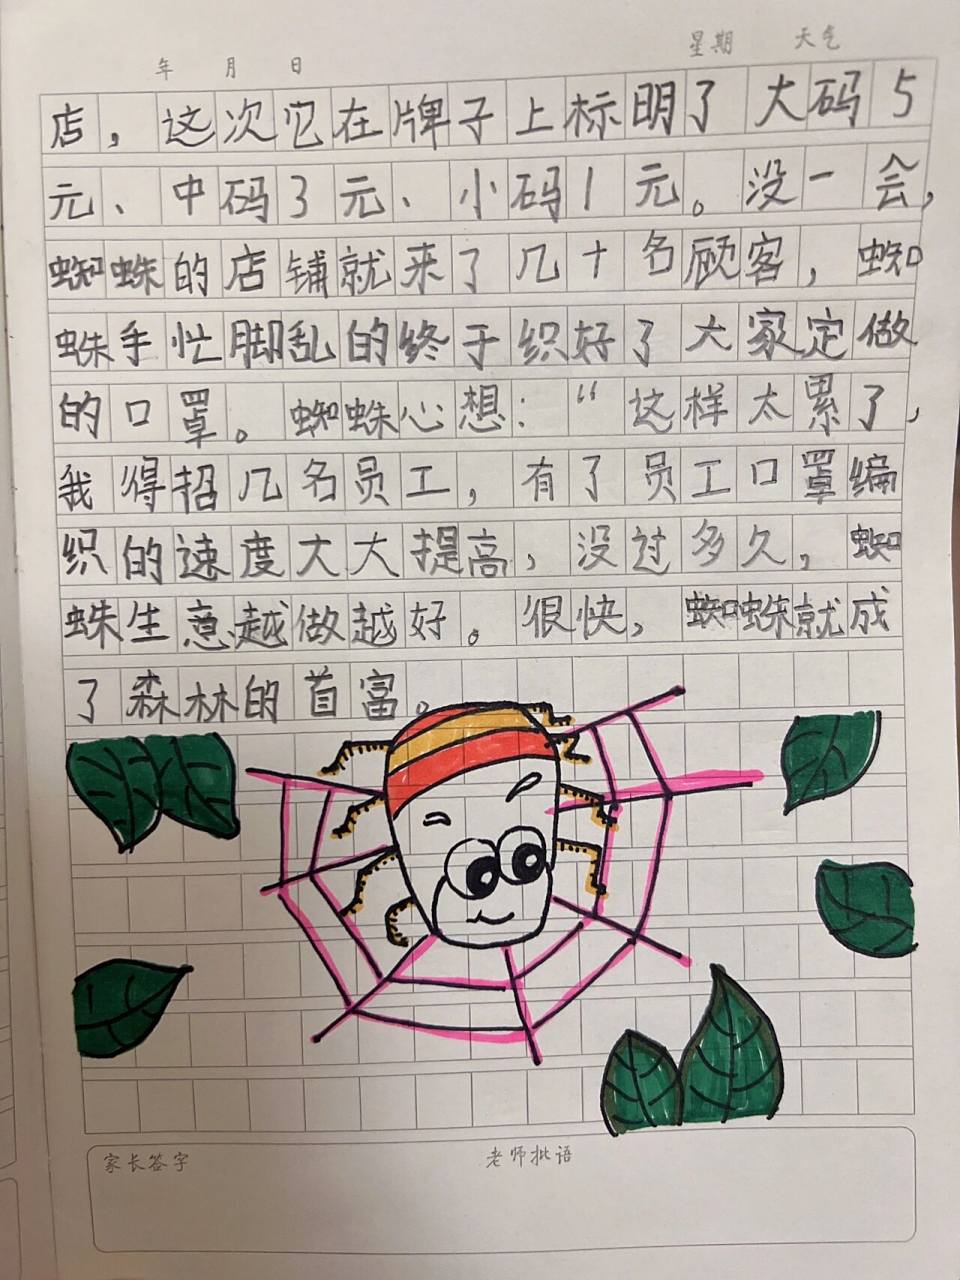 年 月 日 星期 天气
店，这次它在牌子上标明了大码5
元、中码3元、小码1元。没一会，
蜘蛛的店铺就来了几十名顾客，蜘
蛛手忙脚乱的终于织好了大家定做
的口罩。蜘蛛心想：“这样太累了，
我得招几名员工，有了员工口罩编
织的速度大大提高，没过多久，蜘
蛛生意越做越好。很快，蜘蛛就成
了森林的首富。
家长签字 老师批语